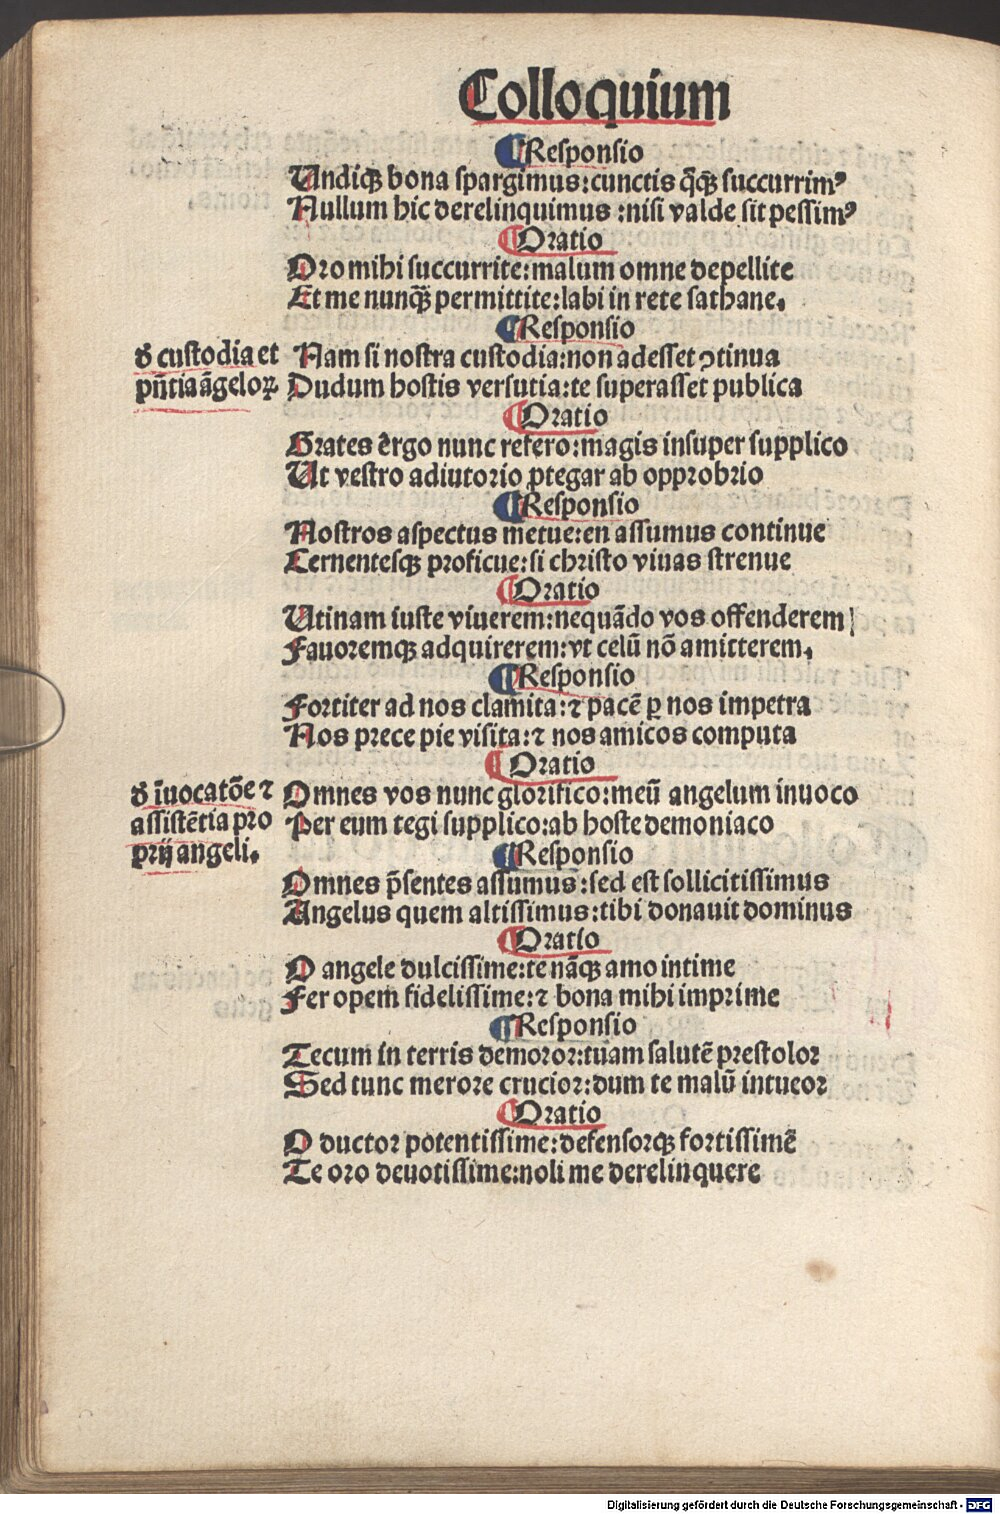 Colloquium
¶Responsio
Undiqꝫ bona spargimus:cunctis q̄qꝫ succurrimꝰ
Nullum hic derelinquimus :nisi valde sit pessimꝰ
¶Oratio
Oro mihi succurrite:malum omne depellite
Et me nunqꝫ permittite:labi in rete sathane.
¶Responsio
ꝺ̄ custodia et
pn̄tia āgeloꝝ
Nam si nostra custodia:non adesset ꝯtinua
Dudum hostis versutia:te superasset publica
¶Oratio
Grates ergo nunc refero:magis insuper supplico
Ut vestro adiutorio ꝓtegar ab opprobrio
¶Responsio
Nostros aspectus metue:en assumus continue
Cernentesqꝫ proficue:si christo viuas strenue
¶Oratio
Utinam iuste viuerem:nequādo vos offenderem
Fauoremqꝫ adquirerem:vt celū nō amitterem.
¶Responsio
Fortiter ad nos clamita:⁊ pacē ꝑ nos impetra
Nos prece pie visita:⁊ nos amicos computa
¶Oratio
ꝺ̄ īuocatōe ⁊
assistētia pro
prij angeli.
Omnes vos nunc glorifico:meū angelum inuoco
Per eum tegi supplico:ab hoste demoniaco
¶Responsio
Omnes p̄sentes assumus:sed est sollicitissimus
Angelus quem altissimus:tibi donauit dominus
¶Oratio
O angele dulcissime:te nāqꝫ amo intime
Fer opem fidelissime:⁊ bona mihi imprime
¶Responsio
Tecum in terris demoror:tuam salutē prestolor
Sed tunc merore crucior:dum te malū intueor
¶Oratio
O ductor potentissime:defensorqꝫ fortissime
Te oro deuotissime:noli me derelinquere
Digitalisierung gefördert durch die Deutsche Forschungsgemeinschaft - DFG